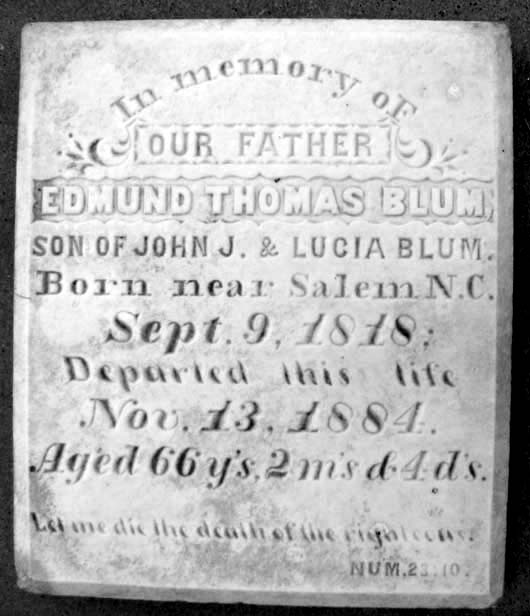 In memory of
OUR FATHER
EDMUND THOMAS BLUM,
SON OF JOHN J. & LUCIA BLUM.
Born near Salem N.C.
Sept. 9, 1818;
Departed this life
Nov. 13, 1884.
Aged 66 y's, 2 m's & 4 d's.
Let me die the death of the righteous.
NUM. 23:10.